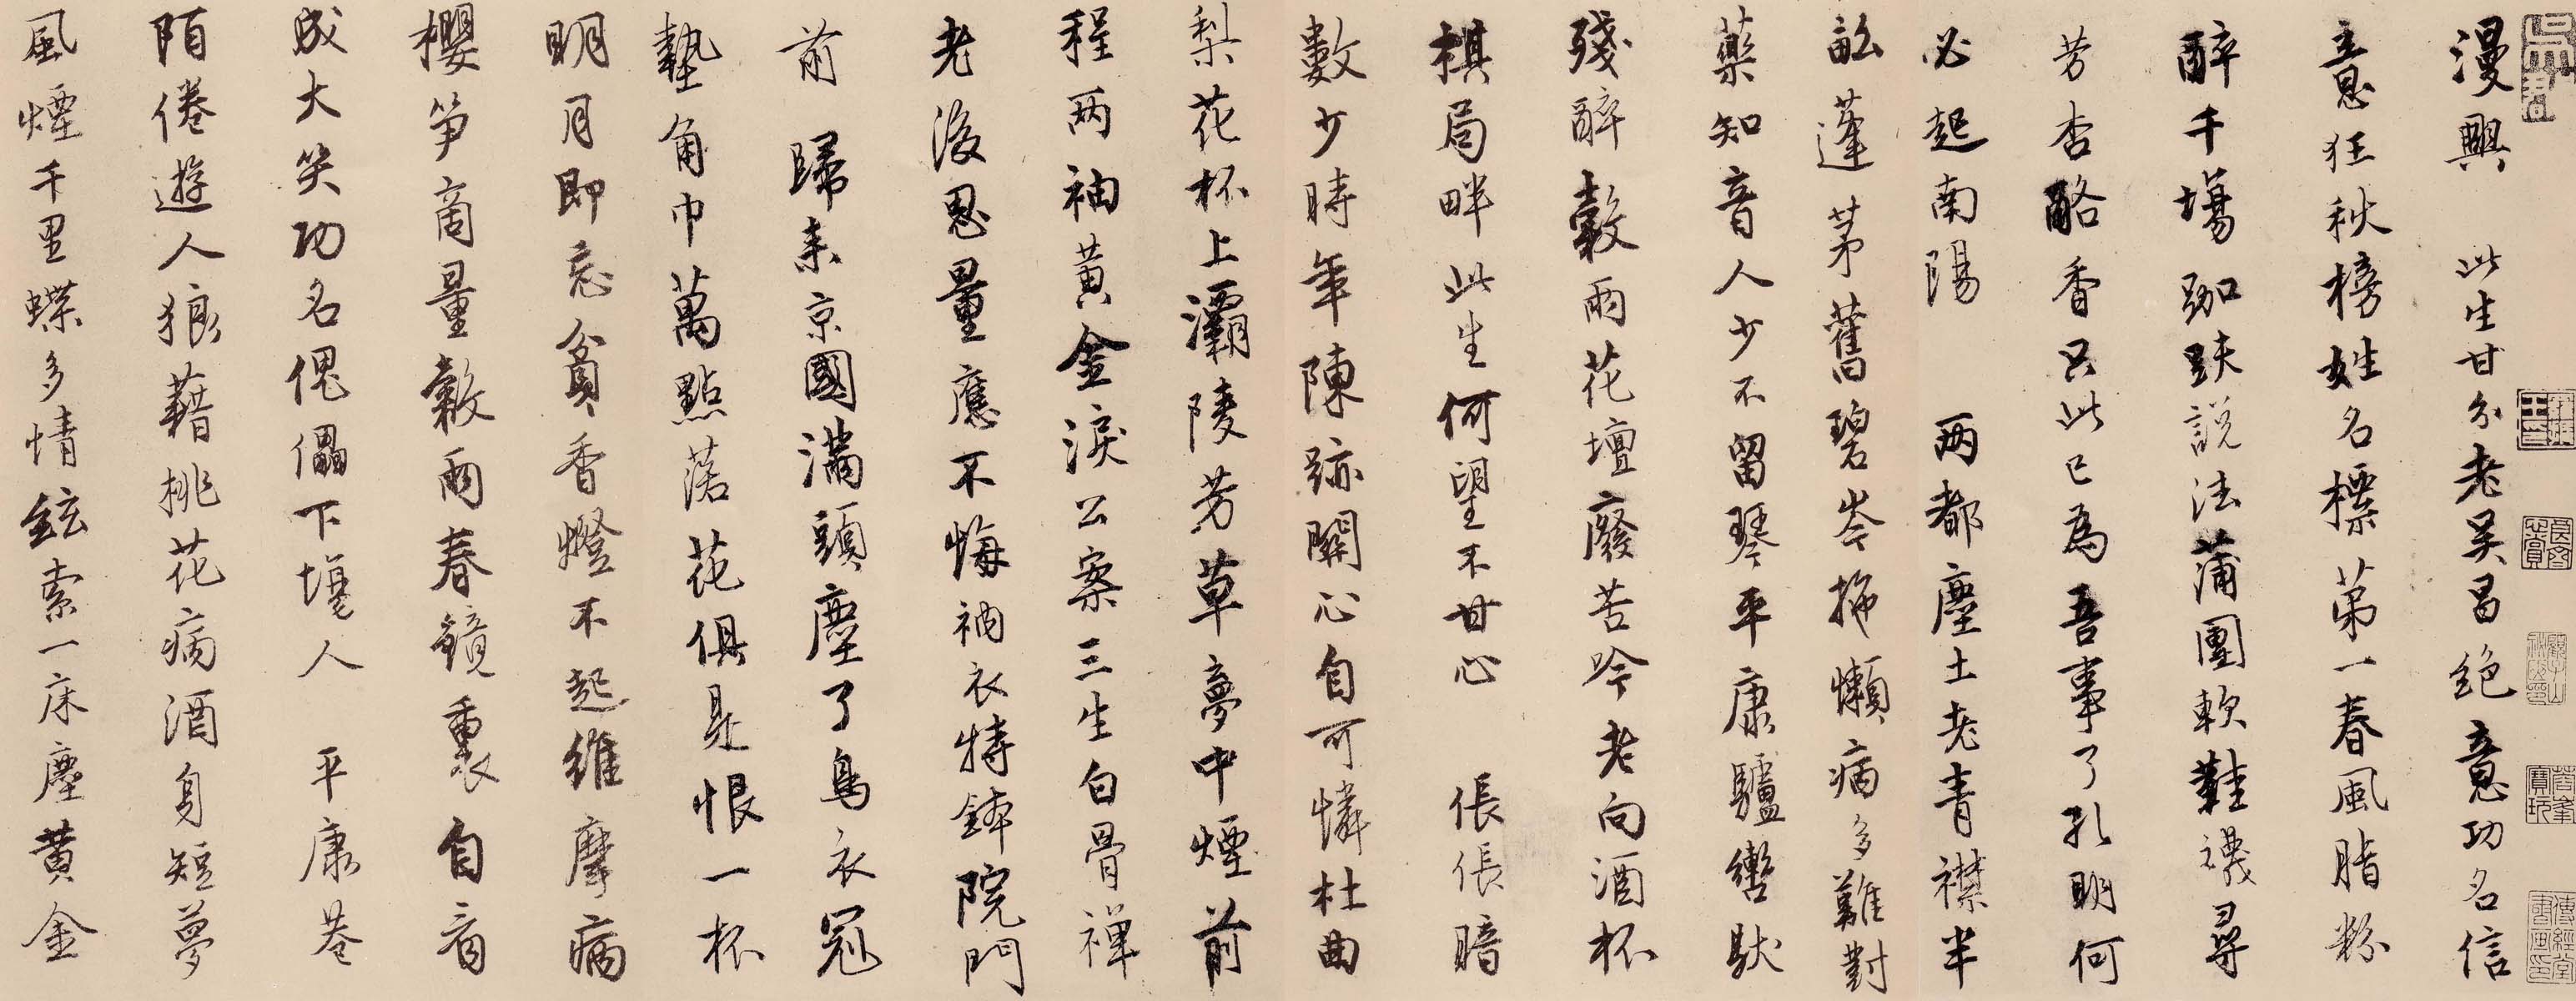 漫興 此生甘分老吴昌絕意功名信
意狂秋榜姓名標第一春風脂粉
醉千場跏趺說法蒲團軟鞋襪尋
芳杏酪香只此已為吾事了孔明何
必起南陽 两都塵土老青襟半
畝蓬茅舊碧岑擁懶病多難對
藥知音人少不留琴平康驢轡馱
殘醉穀雨花壇廢苦吟老向酒杯
棋局畔此生何望不甘心 倀倀暗
數少時年陳跡關心自可憐杜曲
梨花杯上灞陵芳草夢中煙前
程两袖黃金淚公案三生白骨禪
老後思量應不悔衲衣持鉢院門
前 歸來京國滿頭塵了鳥衣冠
墊角巾萬點落花俱是恨一杯
明月即忘貧香燈不起維摩病
櫻笋商量穀雨春鏡裏自看
成大笑功名傀儡下場人 平康巷
陌倦遊人狼藉桃花病酒身短夢
風煙千里蝶多情絃索一床塵黃金